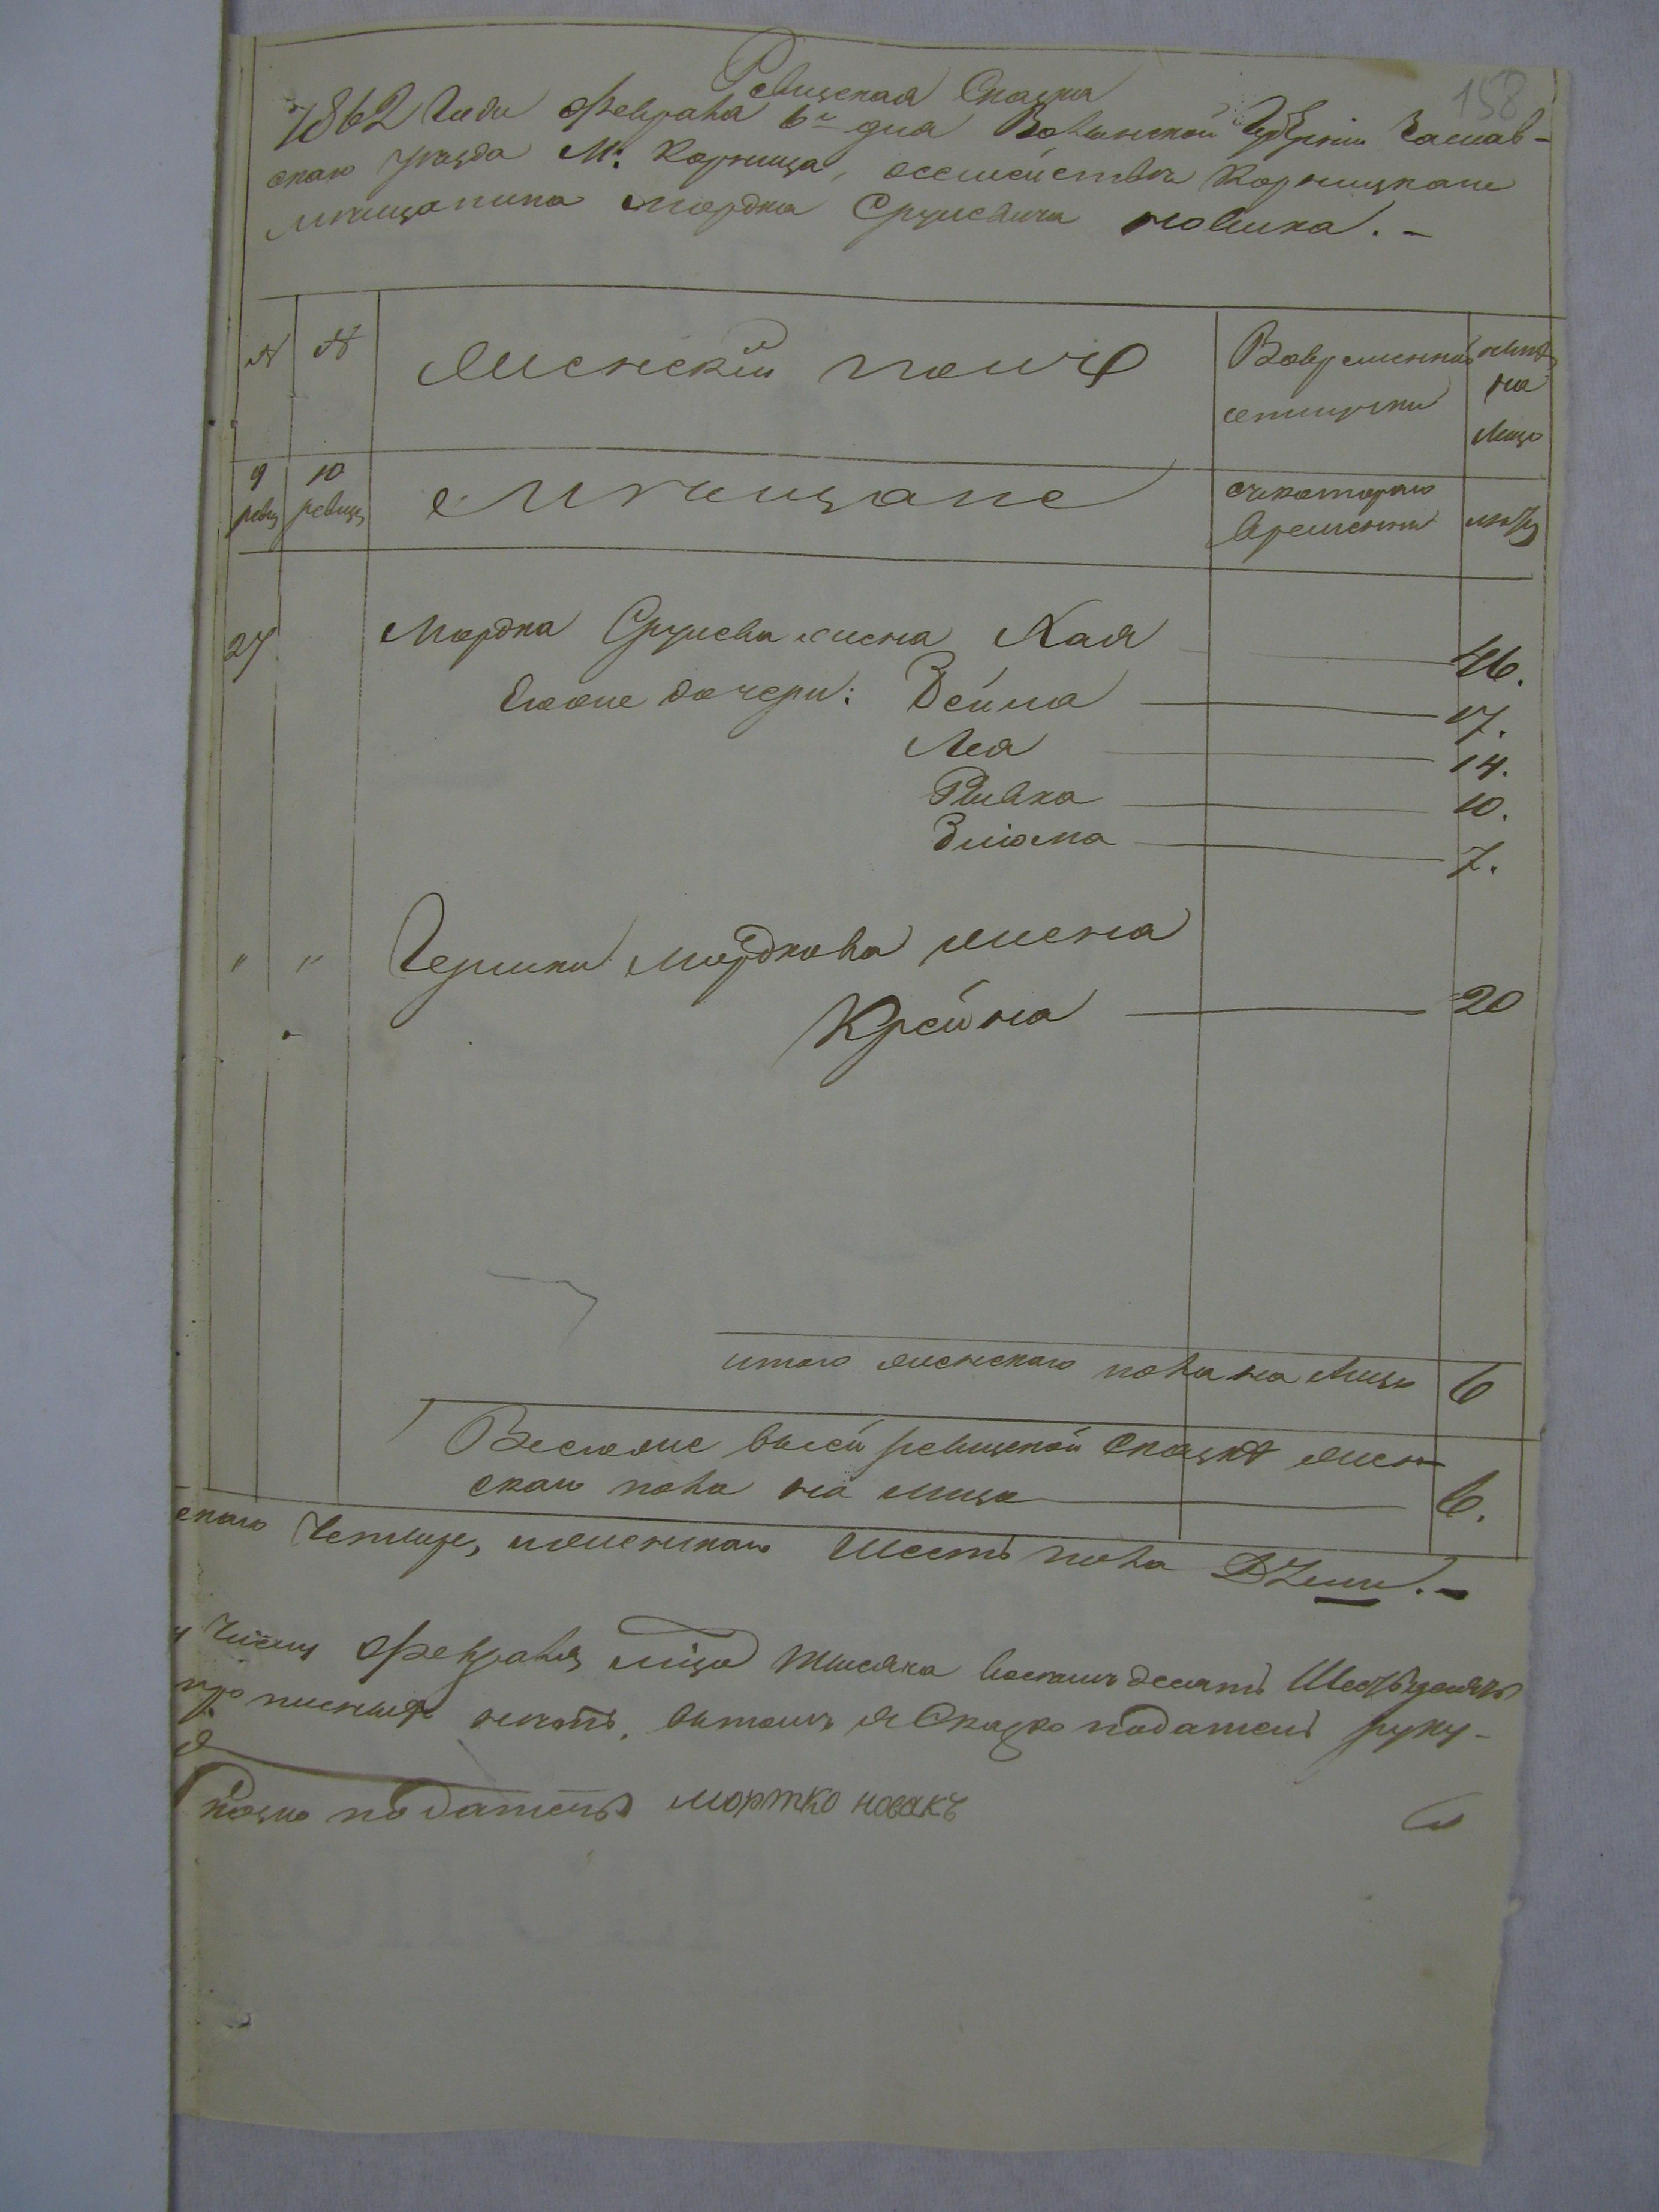 158
Ревизская Сказка
1862 Года Февраля 6го дня Волынской Губернии Заслав-
скаго уезда М: Корница, осемействе Корницкаго
мещанина Мордка Срулевича новика. –
№ № Женский полъ Вовременной отлучки ныне на Лицо
9 ревиз 10 ревизи Мещане
съкотораго времени лета
27 Мордка Срулева жена Хая 46.
Егоже дочери: Бейла 17.
Лея 14.
Ривка 10.
Злота 7.
" " Гершки Мордкова жена
Крейна 20
итого женскаго пола на Лицо 6
Всегоже высей ревизской Сказке жен-
скаго пола на лицо 6.
скаго Четыре, иженскаго Шесть пола Душъ. –
Числу Февраля тысяча восемъ десятъ
прописныя нетъ. вытомъ я Сказко податель руку-
податель мортко новакъ